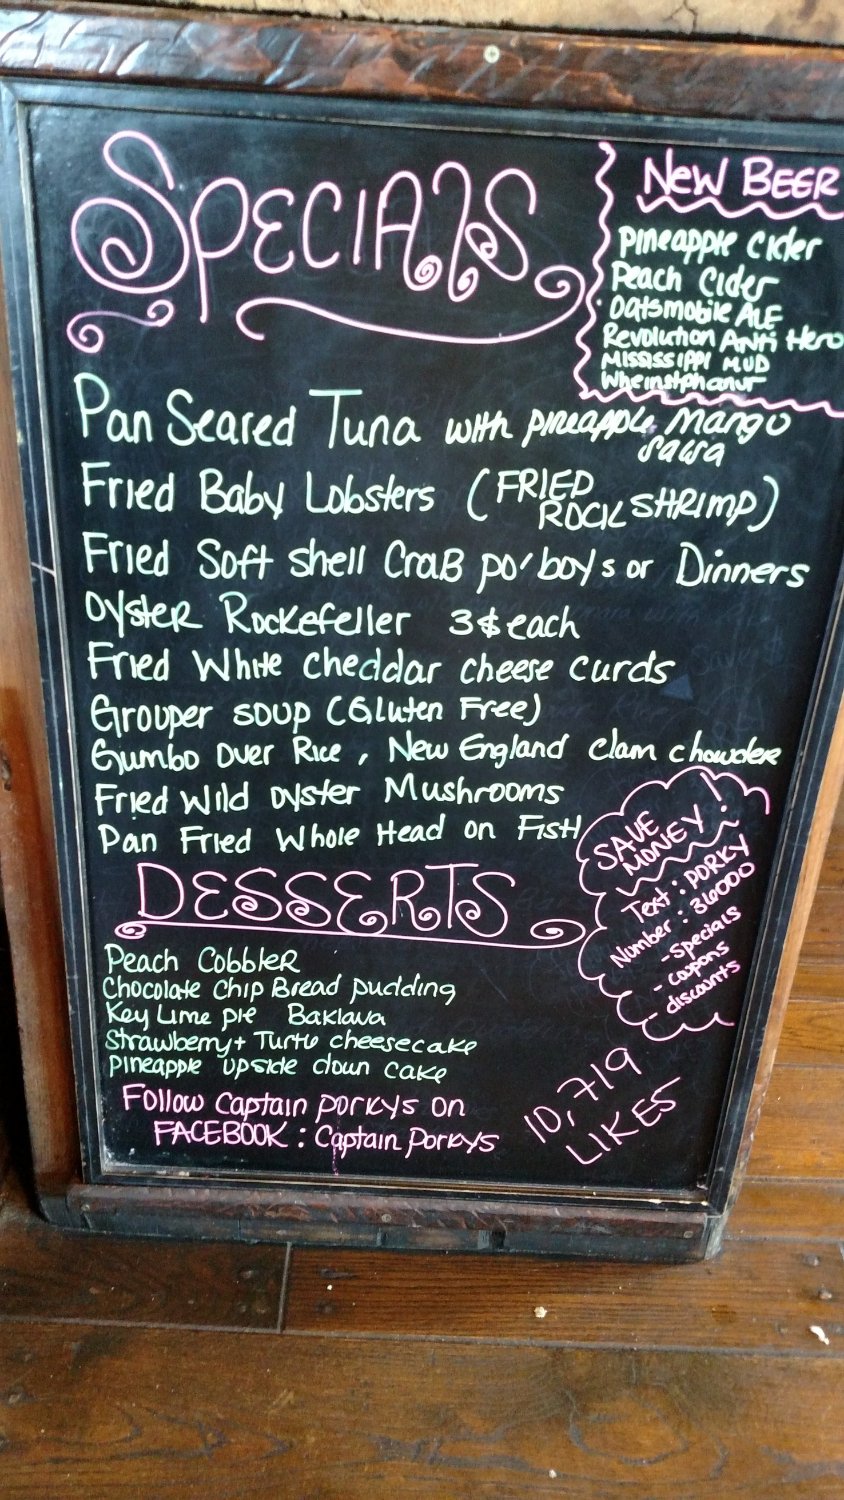 SPECIALS
NEW BEER
Pineapple Cider
Peach Cider
Oatsmobile ALE
Revolution Anti Hero
MISSISSIPPI MUD
Pan Seared Tuna with pineapple mango
Fried Baby Lobsters (FRIED
ROCK SHRIMP)
Fried Soft shell CraB po'boys or Dinners
OYSTER Rockefeller 3$ each
Fried White cheddar cheese curds
Grouper soup (Gluten Free)
Gumbo over Rice, New England clam chowder
Fried Wild oyster Mushrooms
Pan Fried Whole Head on FISH
SAVE
MONEY!
Text: PORKY
Number: 36000
- Specials
- coupons
- discounts
DESSERTS
Peach CobbleR
Chocolate Chip Bread pudding
Key Lime pie Baklava
Strawberry + Turtle cheesecake
pineapple upside down cake
Follow Captain PORKYS on
FACEBOOK: Captain Porkys
10,719
LIKES